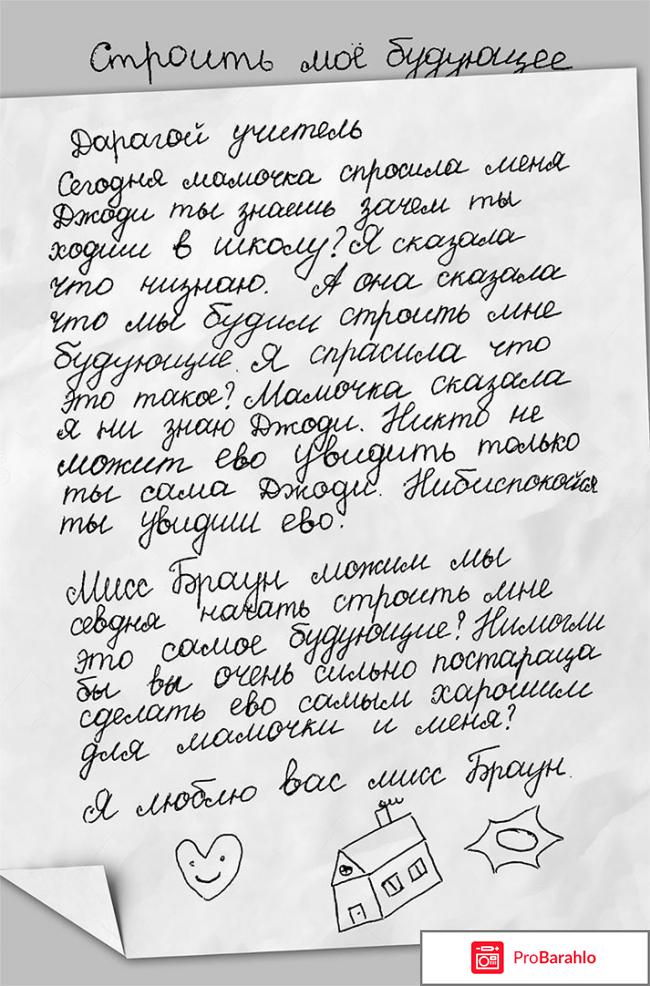 Строить моё будующее
Дарагой учитель
Сегодня мамочка спросила меня
Джоди ты знаешь зачем ты
ходиш в школу? Я сказала
что низнаю. А она сказала
что мы будим строить мне
будующие. Я спрасила что
это такое? Мамочка сказала
я ни знаю Джоди. Никто не
можит ево увидить только
ты сама Джоди. Нибиспокойся
ты увидиш ево.
Мисс Браун можим мы
севдня начать строить мне
это самое будующие? Нимогли
бы вы очень сильно постараца
сделать ево самым харошим
для мамочки и меня?
Я люблю вас мисс Браун.
ProBarahlo